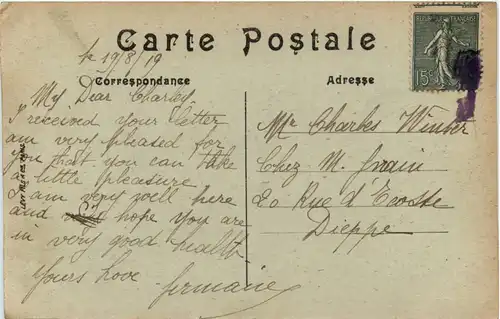 Carte Postale
RÉPUBLIQUE FRANÇAISE
15c
Correspondance
Adresse
le 19/8/19
My Dear Charley
I received your letter
am very pleased for
you that you can take
a little pleasure
I am very well here
and hope you are
in very good health
Yours love Germaine
Mr Charles Winter
Chez M. Grain
20 Rue d'Ecosse
Dieppe